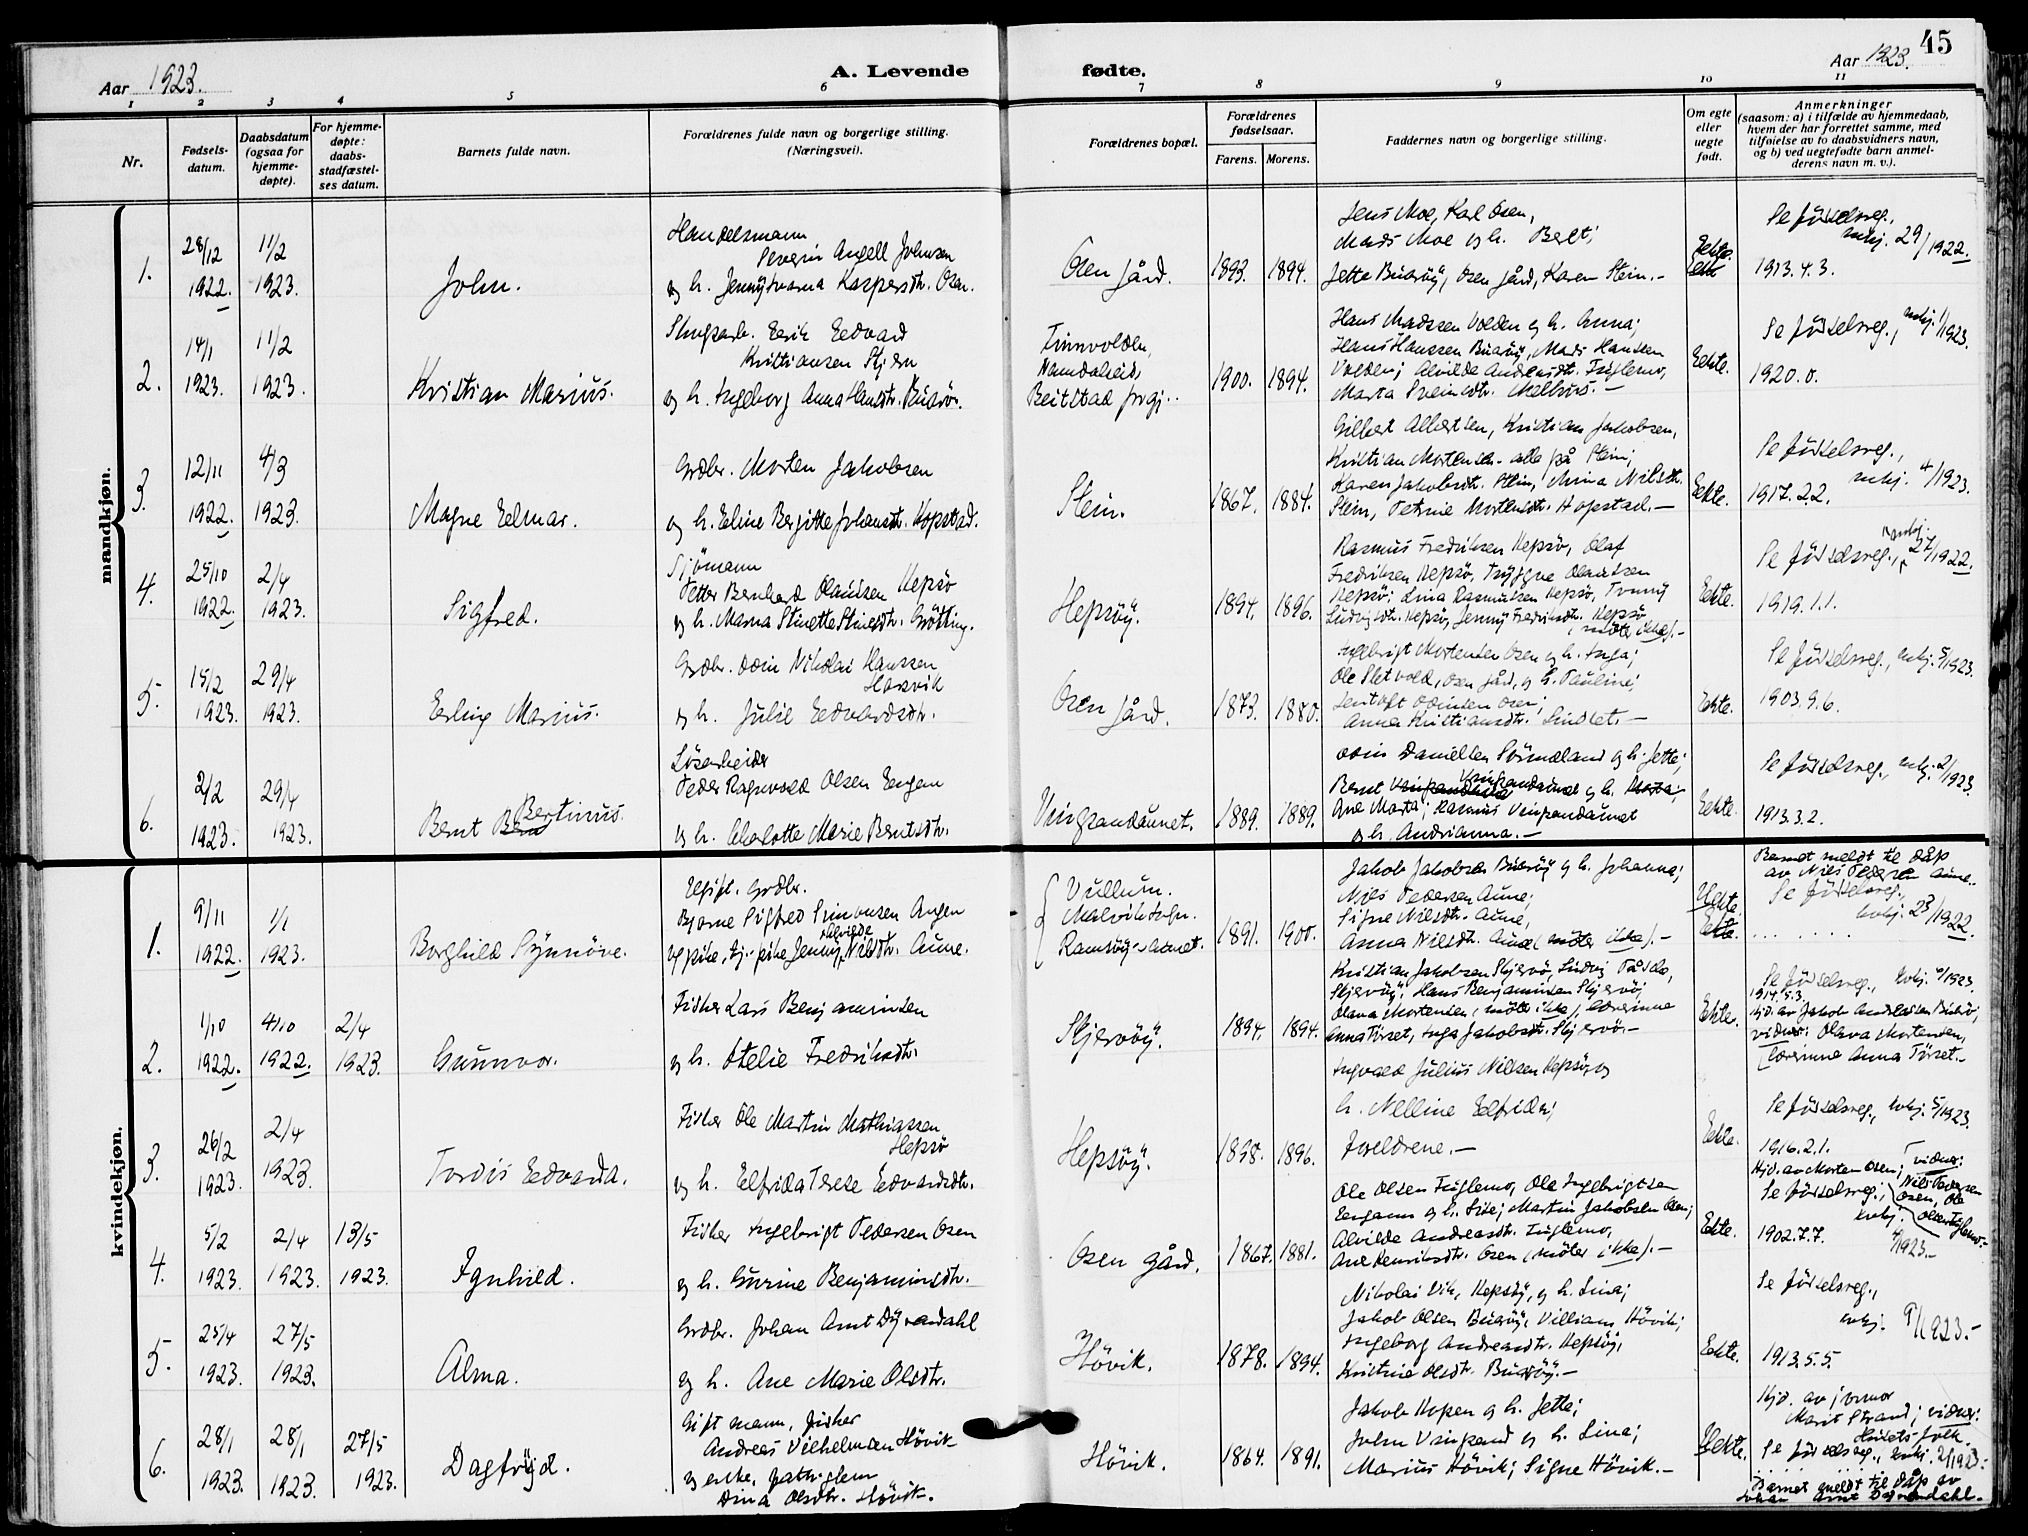 45
Aar 1923. A. Levende fødte. Aar 1923.
1 2 3 4 5 6 7 8 9 10 11
Nr.
Fødsels-
datum.
Daabsdatum
(ogsaa for
hjemme-
døpte).
For hjemme-
døpte:
daabs-
stadfæstel-
ses datum.
Barnets fulde navn.
Forældrenes fulde navn og borgerlige stilling.
(Næringsvei).
Forældrenes bopæl.
Forældrenes
fødselsaar.
Farens. Morens.
Faddernes navn og borgerlige stilling.
Om egte
eller
uegte
født.
Anmerkninger
(saasom: a) i tilfælde av hjemmedaab,
hvem der har forrettet samme, med
tilføielse av to daabsvidners navn,
og b) ved uegtefødte barn anmel-
derens navn m. v.).
mandkjøn.
1.
28/12
1922.
11/2
1923.
John.
Handelsmann
Severin Angell Johnsen
og h. Jenny Kaspersdtr. Osen.
Osen gård.
1893. 1894.
Jens Moe, Karl Osen,
Mads Moe og h. Berit;
Jette Buarøy, Osen gård, Karen Stein.-
Eekte.
Se fødselsreg.,
mkj. 29/1922.
1913.4.3.
2.
14/1
1923.
11/2
1923.
Kristian Marius.
Skogsarb. Eerik Eedvard
Kristiansen Stjern
og h. Ingeborg Anna Hansdtr. Buarøy.
Finnvolden,
Namdalseid,
Beitstad prgj..
1900. 1894.
Hans Madssen Volden og h. Anna;
Hans Hanssen Buarøy, Mads Hanssen
Volden; Alvilde Andersdtr. Fuglemo,
Marta Sveinsdtr.
Eekte.
Se fødselsreg., mkj. 1/1923.
1920.0.
3.
12/11
1922.
4/3
1923.
Magne Eelmar.
Grdbr. Morten Jakobsen
og h. Eeline Bergitte Johansdtr. Hopstad.
Stein.
1867. 1884.
Gilbert Albertsen, Kristian Jakobsen,
Kristian Mortensen - alle på Stein;
Karen Jakobsdtr. Stein, Anna Nilsdtr.
Stein, Petrine Mortensdtr. Hopstad.-
Eekte.
Se fødselsreg.,
mkj. 4/1923.
1917.2.2.
4.
25/10
1922.
2/4
1923.
Sigfred.
Sjömann
Petter Bernhard Olausen Hepsø
og h. Marna Stinette Stinesdtr. Grötting.
Hepsøy.
1894. 1896.
Rasmus Fredriksen Hepsø, Olaf
Fredriksen Hepsø, Tryggve Olausen
Hepsø; Lina Rasmussen Hepsø,
Ludvigsdtr. Hepsø, Jenny Fredriksdtr. Hepsø
(møter ikke).-
Eekte.
Se fødselsreg., mkj. 27/1922.
1919.1.1.
5.
15/2
1923.
29/4
1923.
Eerling Marius.
Grdbr. Odin Nikolai Hanssen
Hasvik
og h. Julie Eedvardsdtr.
Osen gård.
1873. 1880.
Ingebrigt Mortensen Osen og h. Inga;
Ole Sletvold, Osen gård, og h. Pauline;
Odinsen Osen;
Anna Kristiansdtr. Sundset.-
Eekte.
Se fødselsreg., mkj. 5/1923.
1903.9.6.
6.
2/2
1923.
29/4
1923.
Bernt Bertinus.
Løsarbeider
Peder Ragnvald Olsen Eengen
og h. Charlotte Marie Berntsdtr.
Vingsandaunet.
1889. 1889.
Odin Danielsen Sörmeland og h. Jette;
Bernt Vingsandaunet og h.
Ane Marta; Rasmus Vingsandaunet
og h. Andrianna.-
Eekte.
Se fødselsreg., mkj. 2/1923.
1913.3.2.
kvindekjøn.
1.
9/11
1922.
1/1
1923.
Borghild Synnöve.
Ugift. Grdbr.
Bjarne Sigfred Simonsen Angen
og pike, tj.-pike Jenny Alvilde Nilsdtr. Aune.
Vullum.
Malvik sogn.
Ramsøy-Aunet.
1891. 1900.
Jakob Jakobsen Buarøy og h. Johanna;
Nils Pedersen Aune;
Signe Nilsdtr. Aune,
Anna Nilsdtr. Aune (møter ikke).-
Uekte.
Barnet meldt til dåp
av Nils Pedersen Aune..
Se fødselsreg.,
kvkj. 23/1922.
2.
1/10
1922.
4/10
1922.
2/4
1923.
Gunnvor.
Fisker Lars Benjaminsen
og h. Otelie Fredriksdtr.
Skjervøy.
1894. 1894.
Kristian Jakobsen Skjervø, Ludvig
Skjervøy, Hans Benjaminsen Skjervø;
Olava Mortensen (møtte ikke), lærerinne
Anna Törset, Inga Jakobsdtr. Skjervø.-
Eekte.
Se fødselsreg., kvkj. /1923.
1914.5.3.
Hjd. av Jakob Andreassen Buarø;
vidner: Olava Mortensen,
lærerinne Anna Törset.-
3.
26/2
1923.
2/4
1923.
Tordis Eedvarda.
Fisker Ole Martin Mathiassen
Hepsø
og h. Eelfrida Terese Eedvardsdtr.
Hepsøy.
1896.
Ingvald Julius Nilssen Hepsø, og
h. Nelline Eelfride;
Foreldrene.-
Eekte.
Se fødselsreg., kvkj. 5/1923.
1916.2.1.
4.
5/2
1923.
2/4
1923.
13/5
1923.
Ignhild.
Fisker Ingebrigt Pedersen Osen
og h. Gurine Benjaminsdtr.
Osen gård.
1867. 1881.
Ole Olsen Fuglemo, Ole Ingebrigtsen
Eengann og h. Sise; Martin Jakobsen Osen;
Alvilde Andreasdtr. Fuglemo,
Ane Henriksdtr. Osen (møter ikke).-
Eekte.
Hjd. av Morten Osen; vidner:
Nils Pedersen
Osen, Ole
Olsen Fuglemo.-
Se fødselsreg.,
kvkj. 4/1923.-
1902.7.7.
5.
25/4
1923.
27/5
1923.
Alma.
Grdbr. Johan Arnt Dyrendahl
og h. Ane Marie Olsdtr.
Hövik.
1878. 1894.
Nikolai Vik, Hepsøy, og h. Lina;
Jakob Olsen Buarøy, Villiam Hövik;
Ingeborg Andreasdtr. Hepsøy,
Kristine Olsdtr. Buarøy.-
Eekte.
Se fødselsreg.,
kvkj. 9/1923.-
1913.5.5.
6.
28/1
1923.
28/1
1923.
27/5
1923.
Dagfryd.
Gift mann, fisker
Andreas Vilhelmsen Hövik
og enke, fattiglem
Dina Olsdtr. Hövik.
Hövik.
1864. 1891.
Jakob Hopen og h. Jette;
John Vingsand og h. Lina;
Marius Hövik; Signe Hövik.-
Uekte.
Hjd. av jormor
Marit Strand; vidner:
Husets folk.
Se fødselsreg., kvkj. 2/1923.-
Barnet meldt til dåp av
Johan Arnt Dyrendahl.-